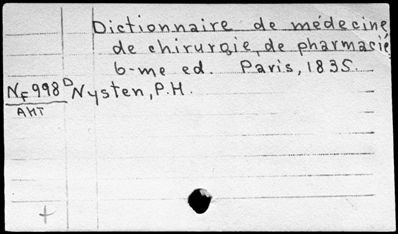 Dictionnaire de médecine
de chirurgie, de pharmacie
6-me ed. Paris, 1835.
NF998D Nysten, P.H.
AHT
+